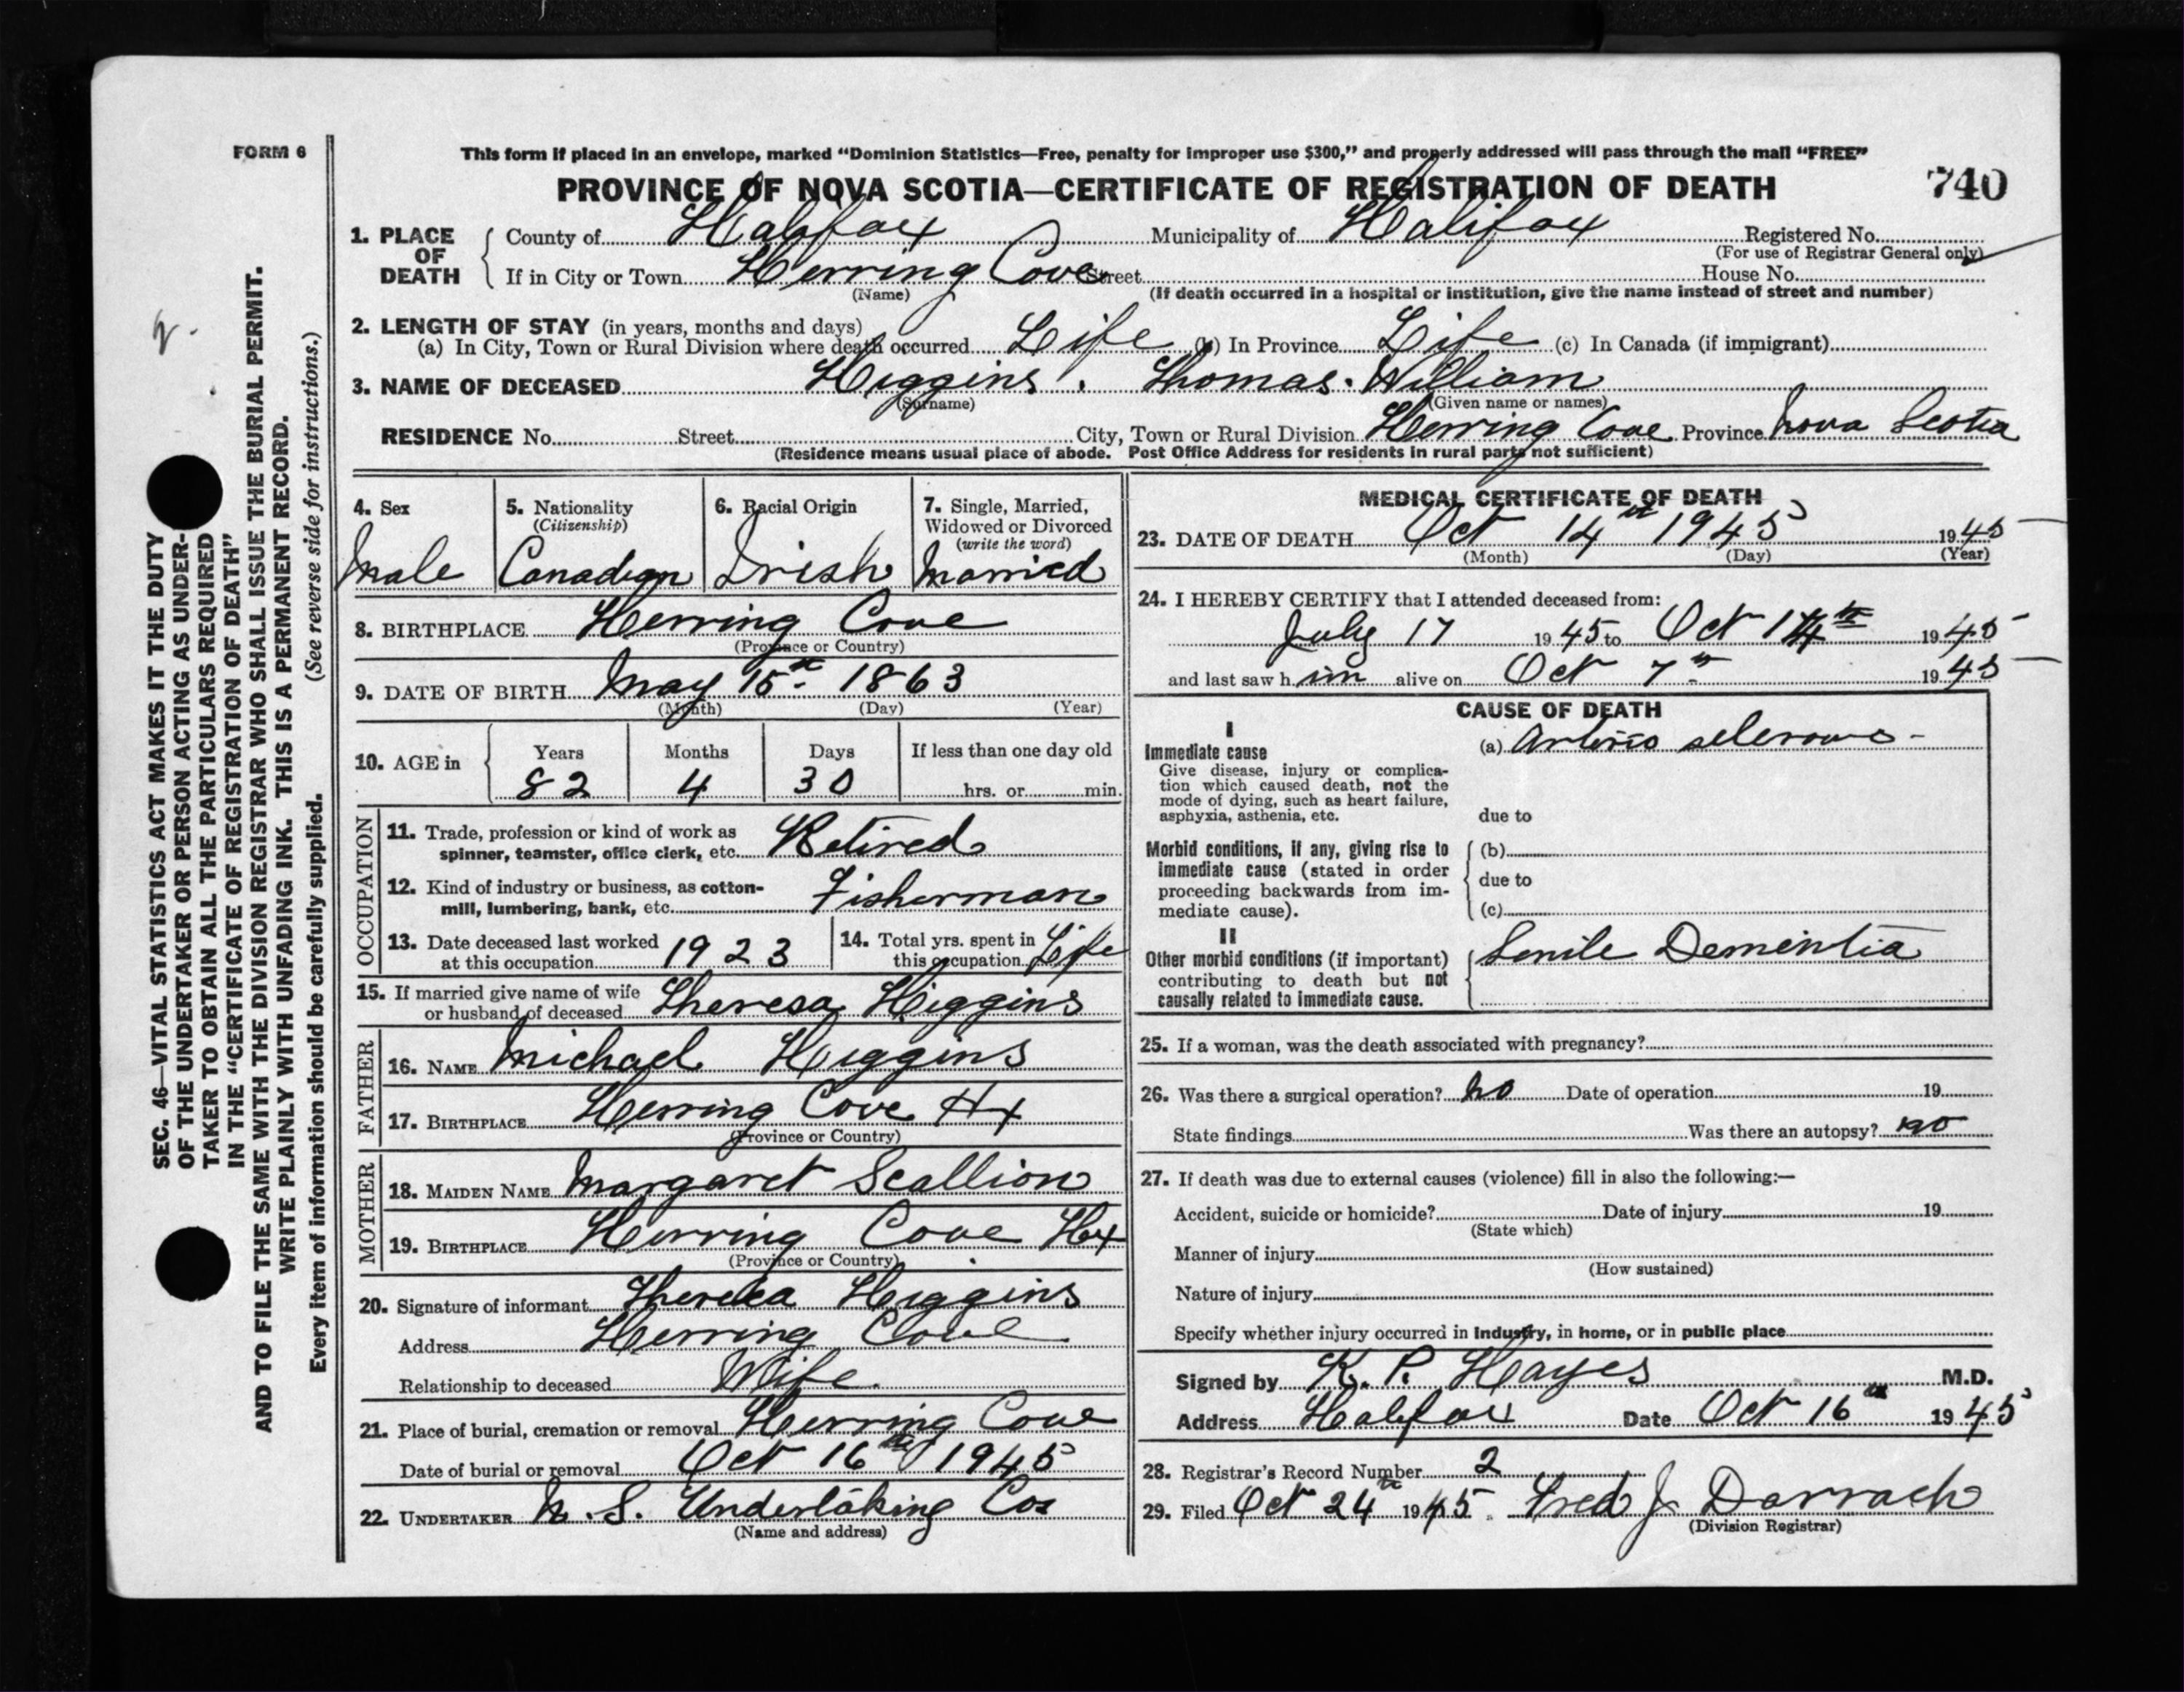 FORM 6
This form if placed in an envelope, marked “Dominion Statistics—Free, penalty for improper use $300,” and properly addressed will pass through the mail “FREE”
PROVINCE OF NOVA SCOTIA—CERTIFICATE OF REGISTRATION OF DEATH
740
1. PLACE OF DEATH
County of Halifax Municipality of Halifax Registered No.
(For use of Registrar General only)
If in City or Town Herring Cove Street House No.
(Name) (If death occurred in a hospital or institution, give the name instead of street and number)
2. LENGTH OF STAY (in years, months and days)
(a) In City, Town or Rural Division where death occurred Life (b) In Province Life (c) In Canada (if immigrant)
3. NAME OF DECEASED Higgins. Thomas. William
(Surname) (Given name or names)
RESIDENCE No. Street City, Town or Rural Division Herring Cove Province Nova Scotia
(Residence means usual place of abode. Post Office Address for residents in rural parts not sufficient)
4. Sex
Male
5. Nationality
(Citizenship)
Canadian
6. Racial Origin
Irish
7. Single, Married,
Widowed or Divorced
(write the word)
Married
8. BIRTHPLACE Herring Cove
(Province or Country)
9. DATE OF BIRTH May 15th 1863
(Month) (Day) (Year)
10. AGE in Years Months Days If less than one day old
82 4 30 hrs. or min.
OCCUPATION
11. Trade, profession or kind of work as
spinner, teamster, office clerk, etc. Retired
12. Kind of industry or business, as cotton-
mill, lumbering, bank, etc. Fisherman
13. Date deceased last worked
at this occupation 1923
14. Total yrs. spent in
this occupation Life
15. If married give name of wife
or husband of deceased Theresa Higgins
FATHER
16. NAME Michael Higgins
17. BIRTHPLACE Herring Cove Hx
(Province or Country)
MOTHER
18. MAIDEN NAME Margaret Scallion
19. BIRTHPLACE Herring Cove Hx
(Province or Country)
20. Signature of informant Theresa Higgins
Address Herring Cove
Relationship to deceased Wife.
21. Place of burial, cremation or removal Herring Cove
Date of burial or removal Oct 16th 1945
22. UNDERTAKER N.S. Undertaking Co
(Name and address)
MEDICAL CERTIFICATE OF DEATH
23. DATE OF DEATH Oct 14th 1945 1945
(Month) (Day) (Year)
24. I HEREBY CERTIFY that I attended deceased from:
July 17 1945 to Oct 14th 1945
and last saw him alive on Oct 7th 1945
CAUSE OF DEATH
I
Immediate cause
Give disease, injury or complica-
tion which caused death, not the
mode of dying, such as heart failure,
asphyxia, asthenia, etc.
(a) Arterio sclerosis -
due to
Morbid conditions, if any, giving rise to
immediate cause (stated in order
proceeding backwards from im-
mediate cause).
(b)
due to
(c)
II
Other morbid conditions (if important)
contributing to death but not
causally related to immediate cause.
Senile Dementia
25. If a woman, was the death associated with pregnancy?
26. Was there a surgical operation? no Date of operation 19
State findings Was there an autopsy? no
27. If death was due to external causes (violence) fill in also the following:—
Accident, suicide or homicide? Date of injury 19
(State which)
Manner of injury
(How sustained)
Nature of injury
Specify whether injury occurred in Industry, in home, or in public place
Signed by K. P. Hayes M.D.
Address Halifax Date Oct 16th 1945
28. Registrar's Record Number 2
29. Filed Oct 24th 1945. Fred J. Darrach
(Division Registrar)
SEC. 46—VITAL STATISTICS ACT MAKES IT THE DUTY
OF THE UNDERTAKER OR PERSON ACTING AS UNDER-
TAKER TO OBTAIN ALL THE PARTICULARS REQUIRED
IN THE “CERTIFICATE OF REGISTRATION OF DEATH”
AND TO FILE THE SAME WITH THE DIVISION REGISTRAR WHO SHALL ISSUE THE BURIAL PERMIT.
WRITE PLAINLY WITH UNFADING INK. THIS IS A PERMANENT RECORD.
Every item of information should be carefully supplied. (See reverse side for instructions.)